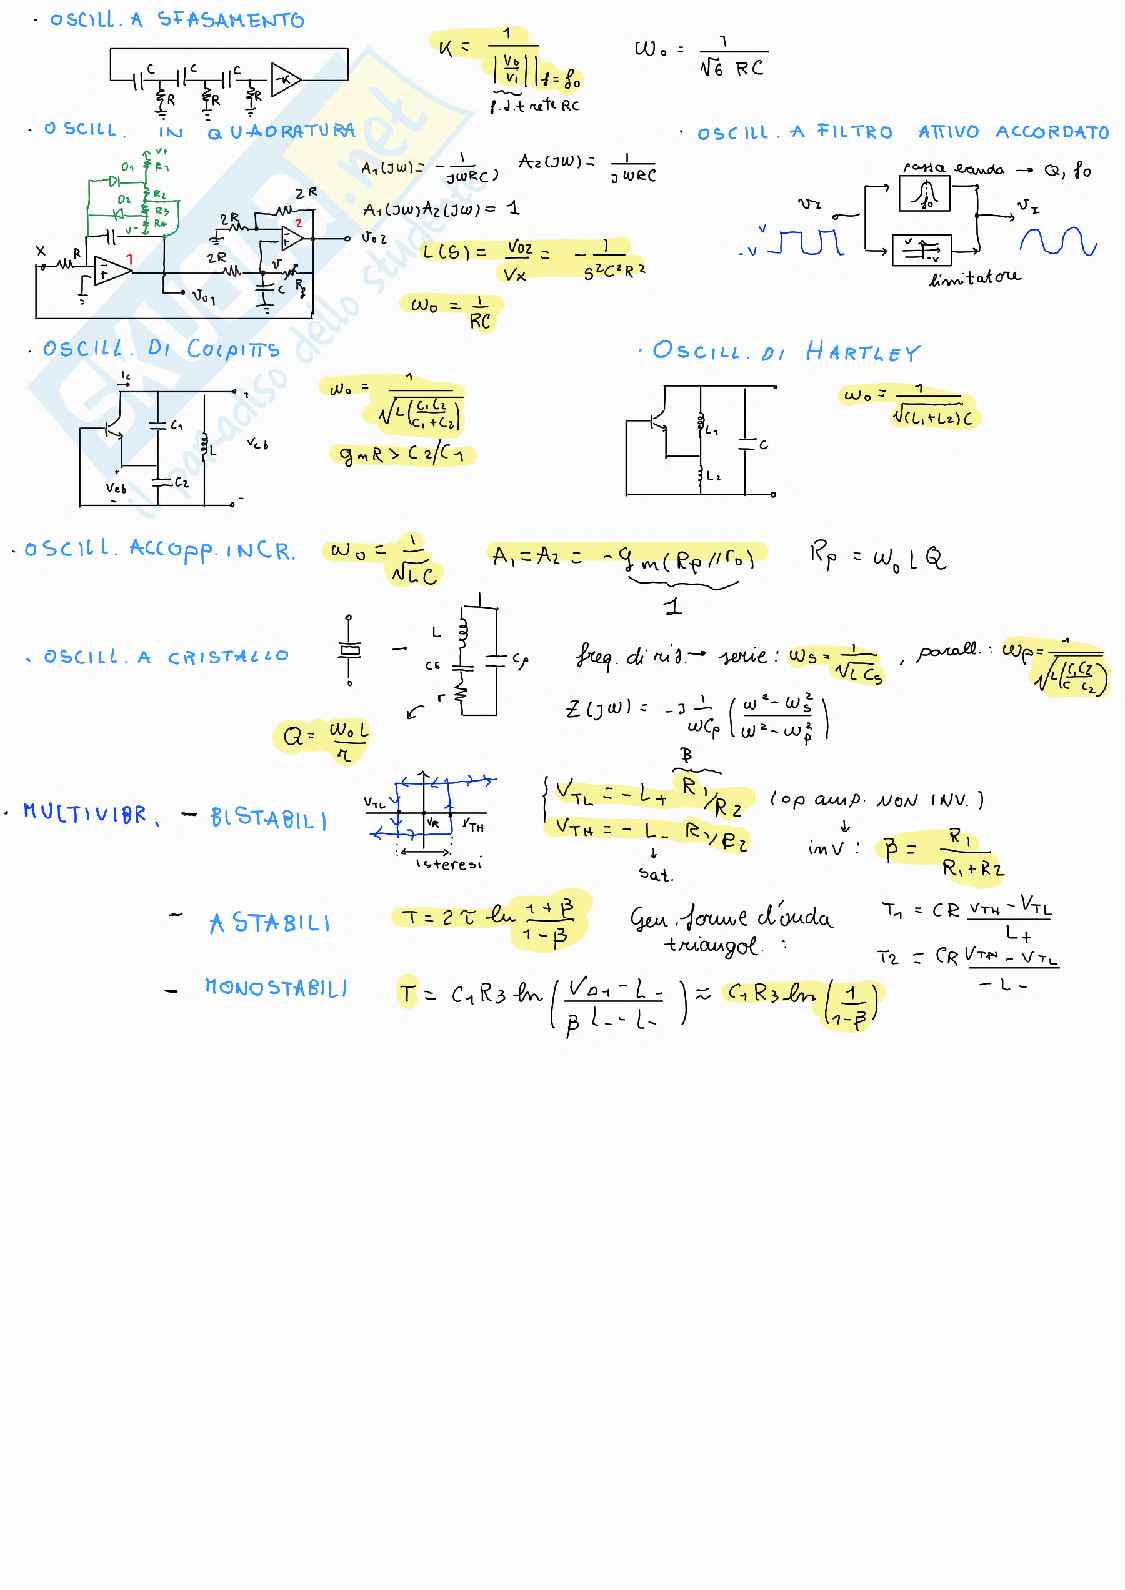 · OSCILL. A SFASAMENTO
C C C R R R -K
K = 1 / |V0/Vi| |f=f0
f.d.t rete RC
ω0 = 1 / √6 RC
· OSCILL. IN QUADRATURA
V+ D1 R1 R2 D2 R3 R4 V-
X R 1 V01 2R 2R 2R 2 V C Rf V02
A1(jω) = - 1/jωRC, A2(jω) = 1/jωRC
A1(jω)A2(jω) = 1
L(S) = V02/Vx = - 1/S²C²R²
ω0 = 1/RC
· OSCILL. A FILTRO ATTIVO ACCORDATO
passa banda → Q, f0
f0
V2
V1
V
-V
V
-V
limitatore
· OSCILL. DI COLPITTS
ic C1 C2 L Vcb Veb + - + -
ω0 = 1 / √L(C1C2/C1+C2)
gmR > C2/C1
· OSCILL. DI HARTLEY
L1 L2 C
ω0 = 1 / √(L1+L2)C
· OSCILL. ACCOPP. INCR.
ω0 = 1/√LC
A1 = A2 = -gm(Rp//r0)
1
Rp = ω0 L Q
· OSCILL. A CRISTALLO
L Cs r Cp
freq. di ris. → serie: ωs = 1/√LCs, parall.: ωp = 1/√L(C1C2/C C2)
Z(jω) = -j 1/ωCp (ω²-ωs²/ω²-ωp²)
Q = ω0L/r
· MULTIVIBR. - BISTABILI
VTL VR VTH
isteresi
β
VTL = - L+ R1/R2
VTH = - L- R1/R2
sat.
(op amp. NON INV.)
inv: β = R1/R1+R2
- ASTABILI
T = 2τ ln 1+β/1-β
Gen. forme d'onda
triangol. :
T1 = CR VTH-VTL/L+
T2 = CR VTH-VTL/-L-
- MONOSTABILI
T = C1R3 ln (VD1-L-/βL--L-) ≈ C1R3 ln (1/1-β)
SKUOLA.net
il paradiso dello studente